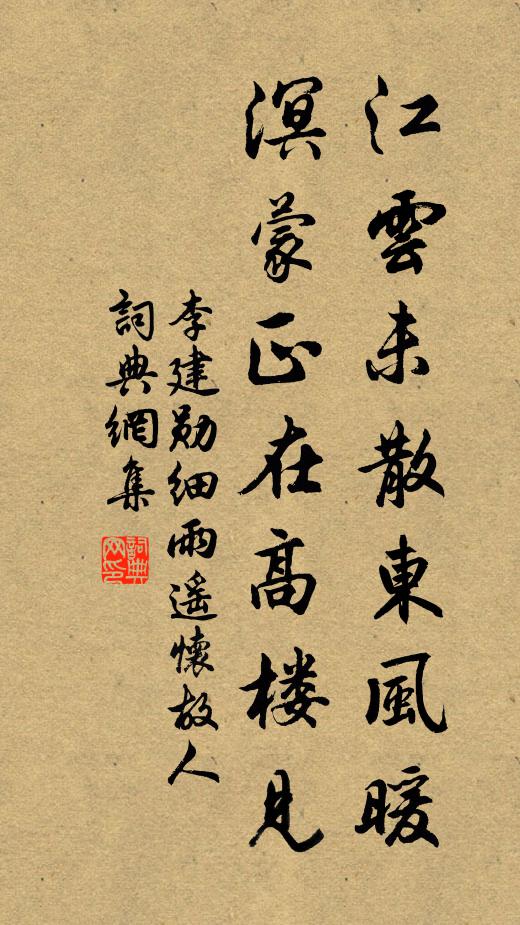 江雲未散東風暖
溟蒙正在高楼見
李建勛细雨遥懷故人
詞典網集
詞典网印